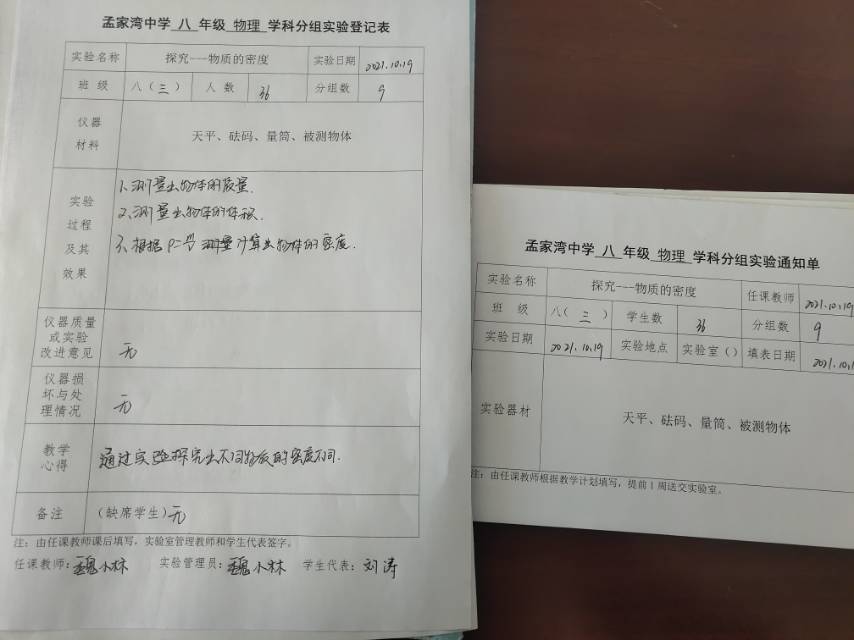 孟家湾中学 八 年级 物理 学科分组实验登记表
实验名称 探究---物质的密度 实验日期 2021.10.19
班 级 八（三） 人 数 36 分组数 9
仪器
材料
天平、砝码、量筒、被测物体
实验
过程
及其
效果
1、测量出物体的质量.
2、测量出物体的体积.
3、根据ρ=m/v 测量计算出物体的密度.
仪器质量
或实验
改进意见
无
仪器损
坏与处
理情况
无
教学
心得
通过实验探究出不同物质的密度不同.
备注 (缺席学生) 无
注：由任课教师课后填写，实验室管理教师和学生代表签字。
任课教师：魏小林 实验管理员：魏小林 学生代表：刘涛
孟家湾中学 八 年级 物理 学科分组实验通知单
实验名称 探究---物质的密度 任课教师 2021.10.19
班 级 八（三） 学生数 36 分组数 9
实验日期 2021.10.19 实验地点 实验室（） 填表日期 2021.10.1
实验器材 天平、砝码、量筒、被测物体
注：由任课教师根据教学计划填写，提前1周送交实验室。